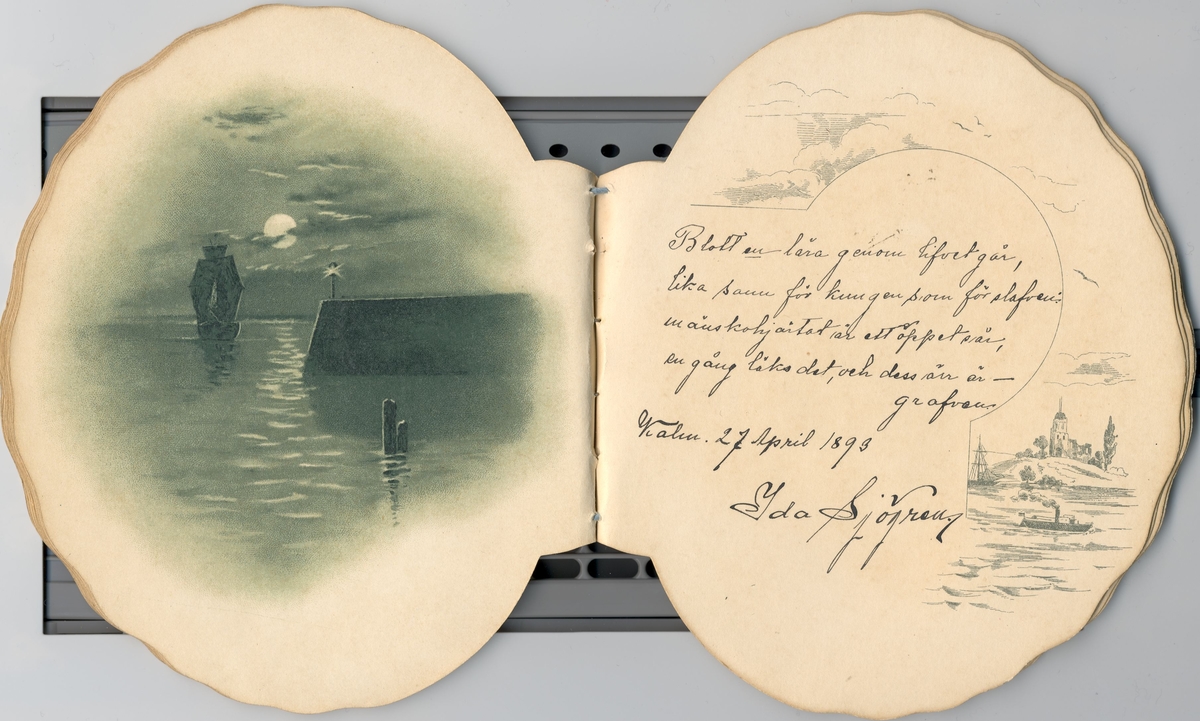 Blott en lära genom lifvet går,
lika sann för kungen som för slafven:
mänskohjärtat är ett öppet sår,
en gång läks det, och dess ärr är —
grafven.
Kalm. 27 April 1893
Ida Sjögren